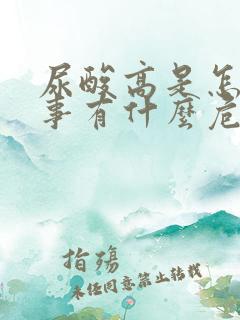 尿酸高是怎
事有什麼危
指殤
未经同意禁止转载